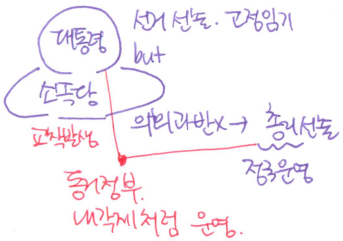 대통령
선거 선출. 고정임기
but
소뽁당
교착발생
의회과반X → 총리선출
정국운영
동거정부.
내각제처럼 운영.